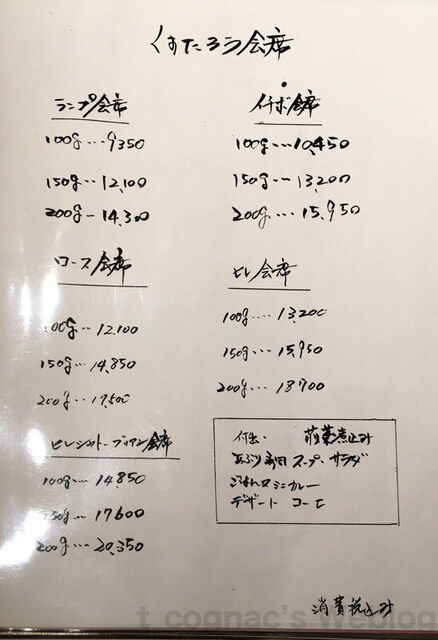 くすたろう会席
ランプ会席
100g…9350
150g…12,100
200g…14,300
イチボ会席
100g…10,450
150g…13,200
200g…15,950
ロース会席
100g…12,100
150g…14,850
200g…17,600
ヒレ会席
100g…13,200
150g…15,950
200g…18,700
ヒレシャトーブリアン会席
100g…14,850
150g…17600
200g…20,350
付出、煮込み
スープ、サラダ
ミニカレー
デザート コーヒ
消費税込み
t cognac's weblog